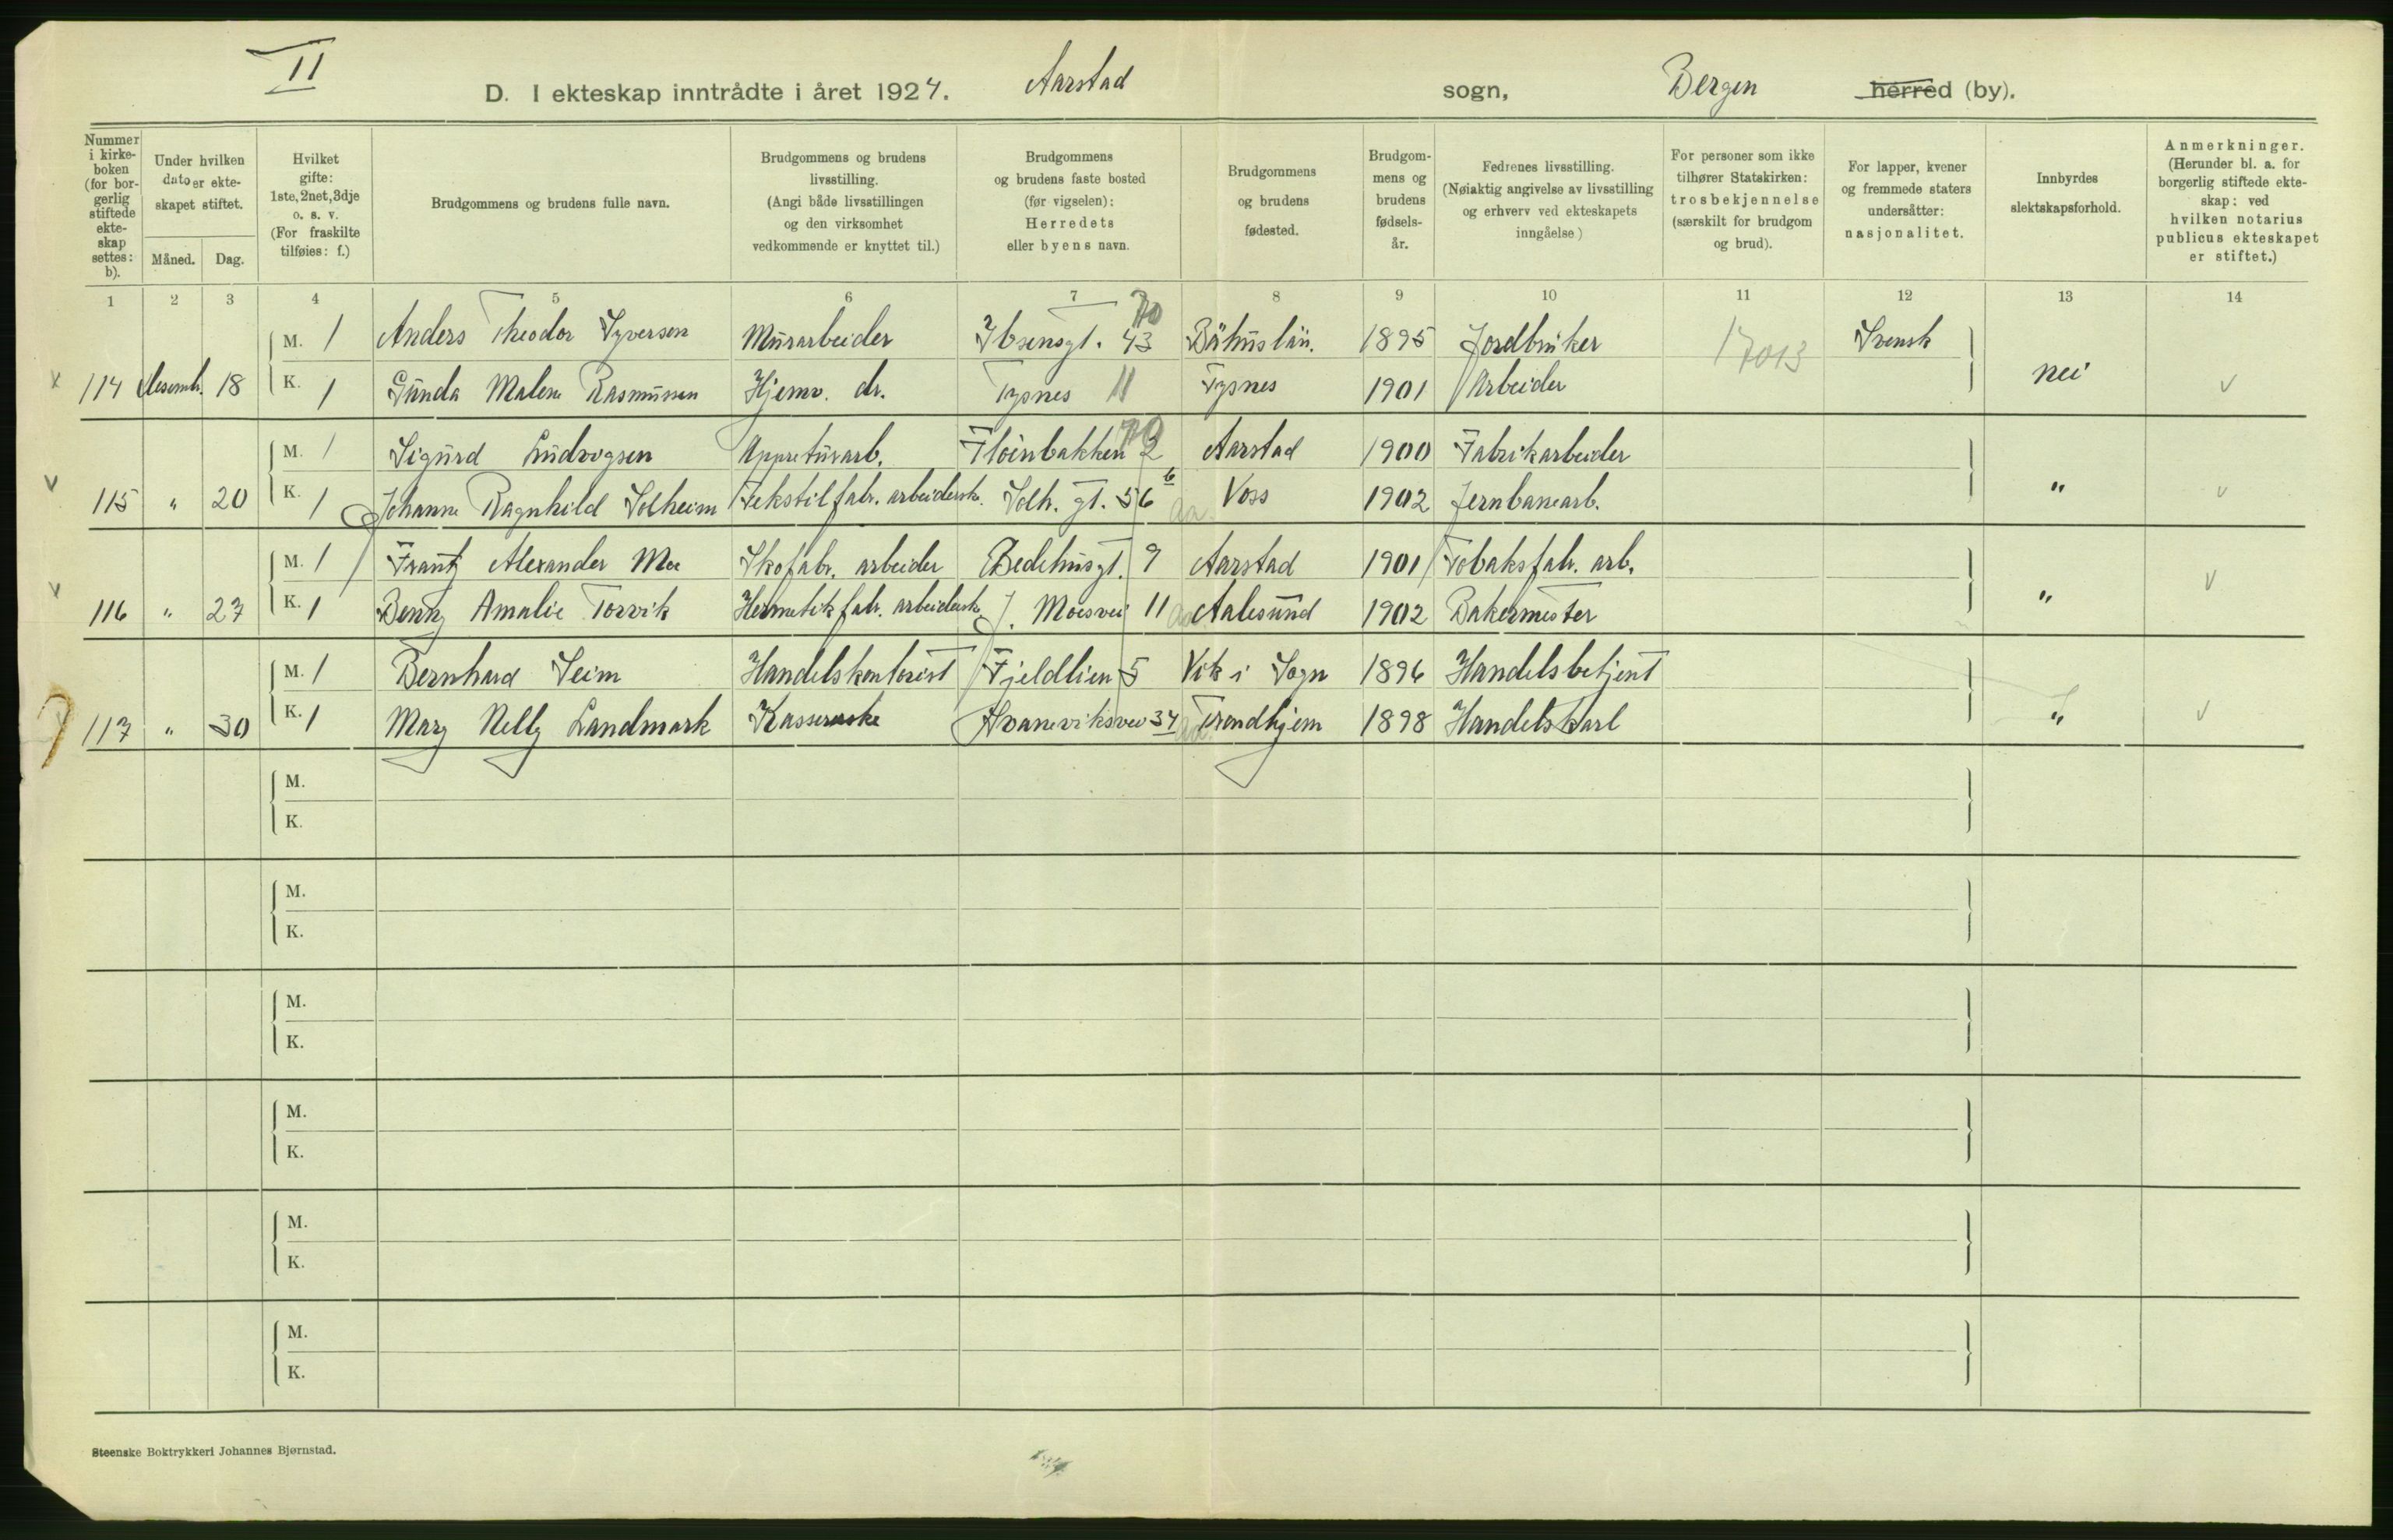 II
D. I ekteskap inntrådte i året 1924. Aarstad sogn, Bergen herred (by).
Nummer i kirkeboken (for borgerlig stiftede ekteskap settes: b).
Under hvilken dato er ekteskapet stiftet.
Måned. Dag.
Hvilket gifte: 1ste, 2net, 3dje o. s. v. (For fraskilte tilføies: f.)
Brudgommens og brudens fulle navn.
Brudgommens og brudens livsstilling. (Angi både livsstillingen og den virksomhet vedkommende er knyttet til.)
Brudgommens og brudens faste bosted (før vigselen): Herredets eller byens navn.
Brudgommens og brudens fødested.
Brudgommens og brudens fødselsår.
Fedrenes livsstilling. (Nøiaktig angivelse av livsstilling og erhverv ved ekteskapets inngåelse)
For personer som ikke tilhører Statskirken: trosbekjennelse (særskilt for brudgom og brud).
For lapper, kvener og fremmede staters undersåtter: nasjonalitet.
Innbyrdes slektskapsforhold.
Anmerkninger. (Herunder bl. a. for borgerlig stiftede ekteskap: ved hvilken notarius publicus ekteskapet er stiftet.)
1 2 3 4 5 6 7 8 9 10 11 12 13 14
M. 1 Anders Theodor Syversen Murarbeider Ibsensgt. 43 Båhuslän. 1895 Jordbruker 17013 Svensk
x 114 desemb. 18 K. 1 Gunda Malene Rasmussen Hjemv. dr. Tysnes 11 Tysnes 1901 Arbeider nei v
M. 1 Sigurd Ludvogsen Appreturarb. Fløenbakken 2 Aarstad 1900 Fabrikarbeider
v 115 " 20 K. 1 Johanne Ragnhild Solheim Tekstilfabr. arbeidersk. Solh. gt. 56 b Aa. Voss 1902 Jernbanearb. " v
M. 1 Frantz Alexander Moe Skofabr. arbeider Bedehusgt. 9 Aarstad 1901 Tobaksfabr. arb.
v 116 " 27 K. 1 Benny Amalie Torvik Hermetikfabr. arbeidersk J. Moesvei 11 Aa Aalesund 1902 Bakermester " v
M. 1 Bernhard Seim Handelskontorist Fjeldlien 5 Vik i Sogn 1896 Handelsbetjent
117 " 30 K. 1 Mary Nelly Landmark Kassererske Svaneviksvei 34 Aa. Trondhjem 1898 Handelskarl " v
M.
K.
M.
K.
M.
K.
M.
K.
M.
K.
M.
K.
Steenske Boktrykkeri Johannes Bjørnstad.